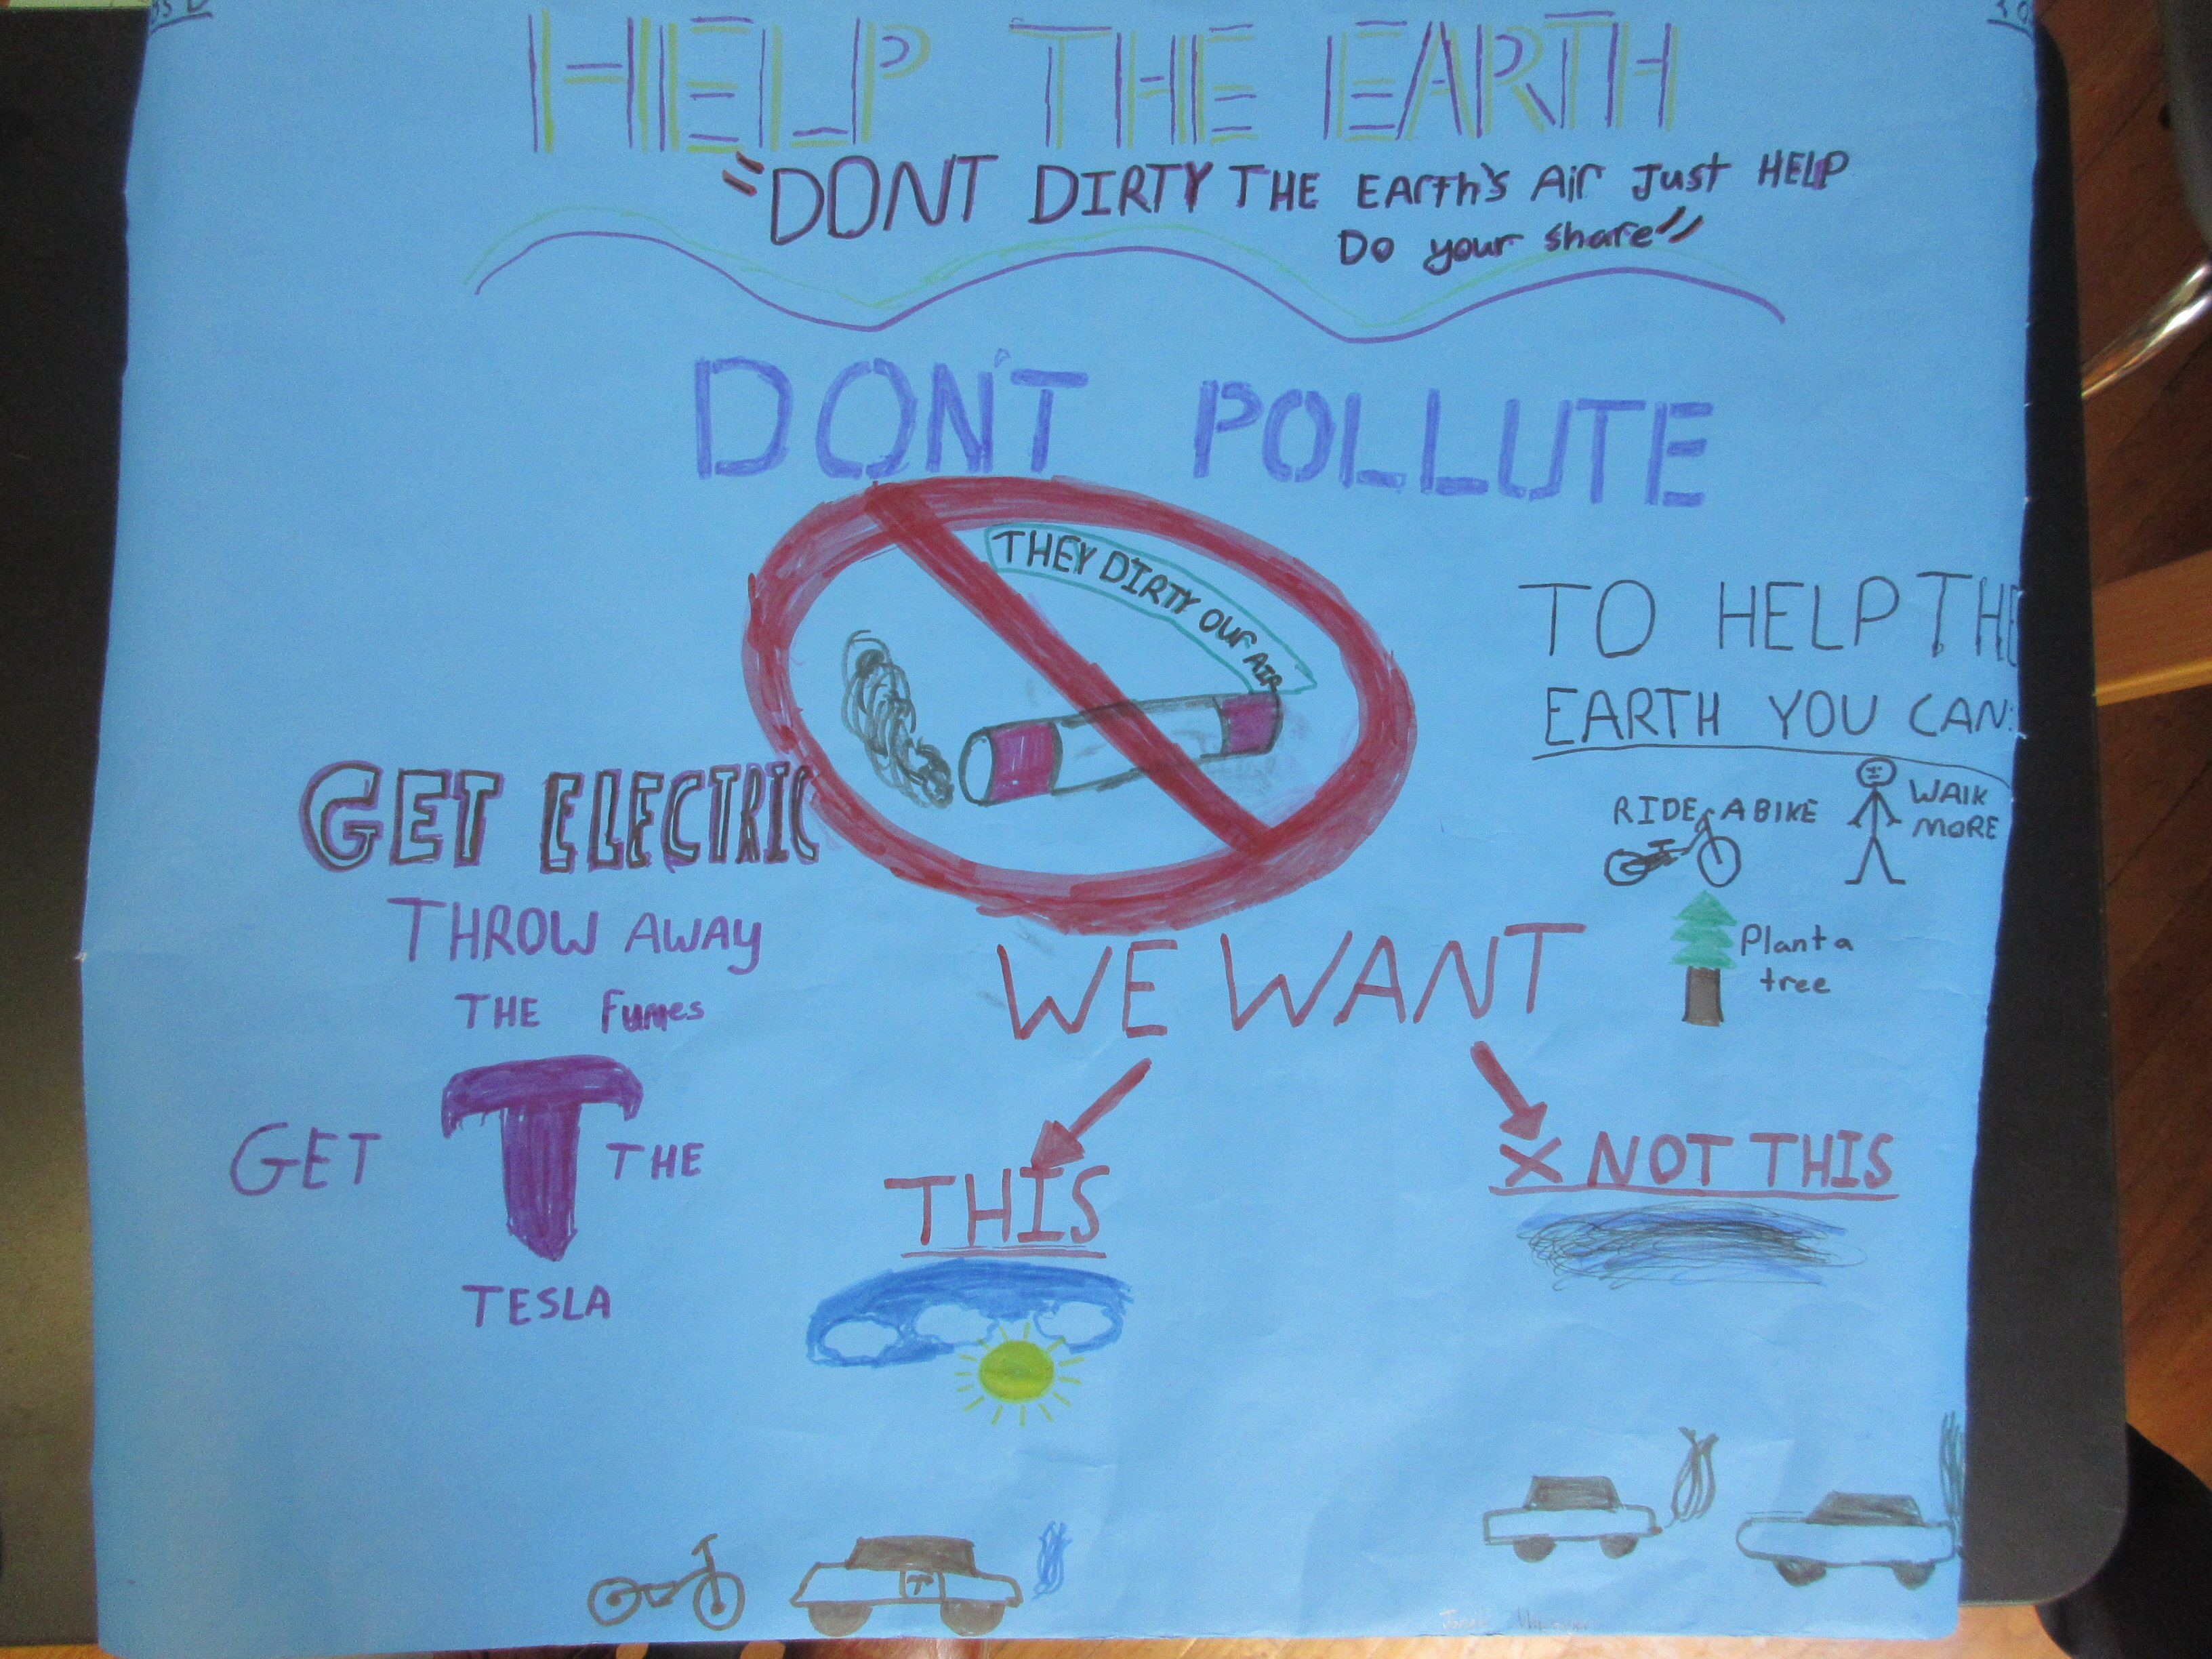 HELP THE EARTH
"DONT DIRTY THE EArth's Air Just HELP
Do your share"
DON'T POLLUTE
THEY DIRTY OUr AIR
TO HELP THE
EARTH YOU CAN:
RIDE A BIKE
WAlK
MORE
Plant a
tree
GET ELECTRIC
THROW AWAY
THE Fumes
GET T THE
TESLA
WE WANT
THIS
X NOT THIS
T